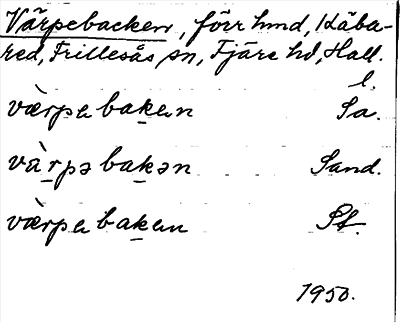 Värpebacken, förr hmd, Kåba-
red, Frillesås sn, Fjäre hd, Hall.
l.
væ̀rpabakan Sa.
và̱rpəbakən Sand.
væ̀rpabakan St.
1950.